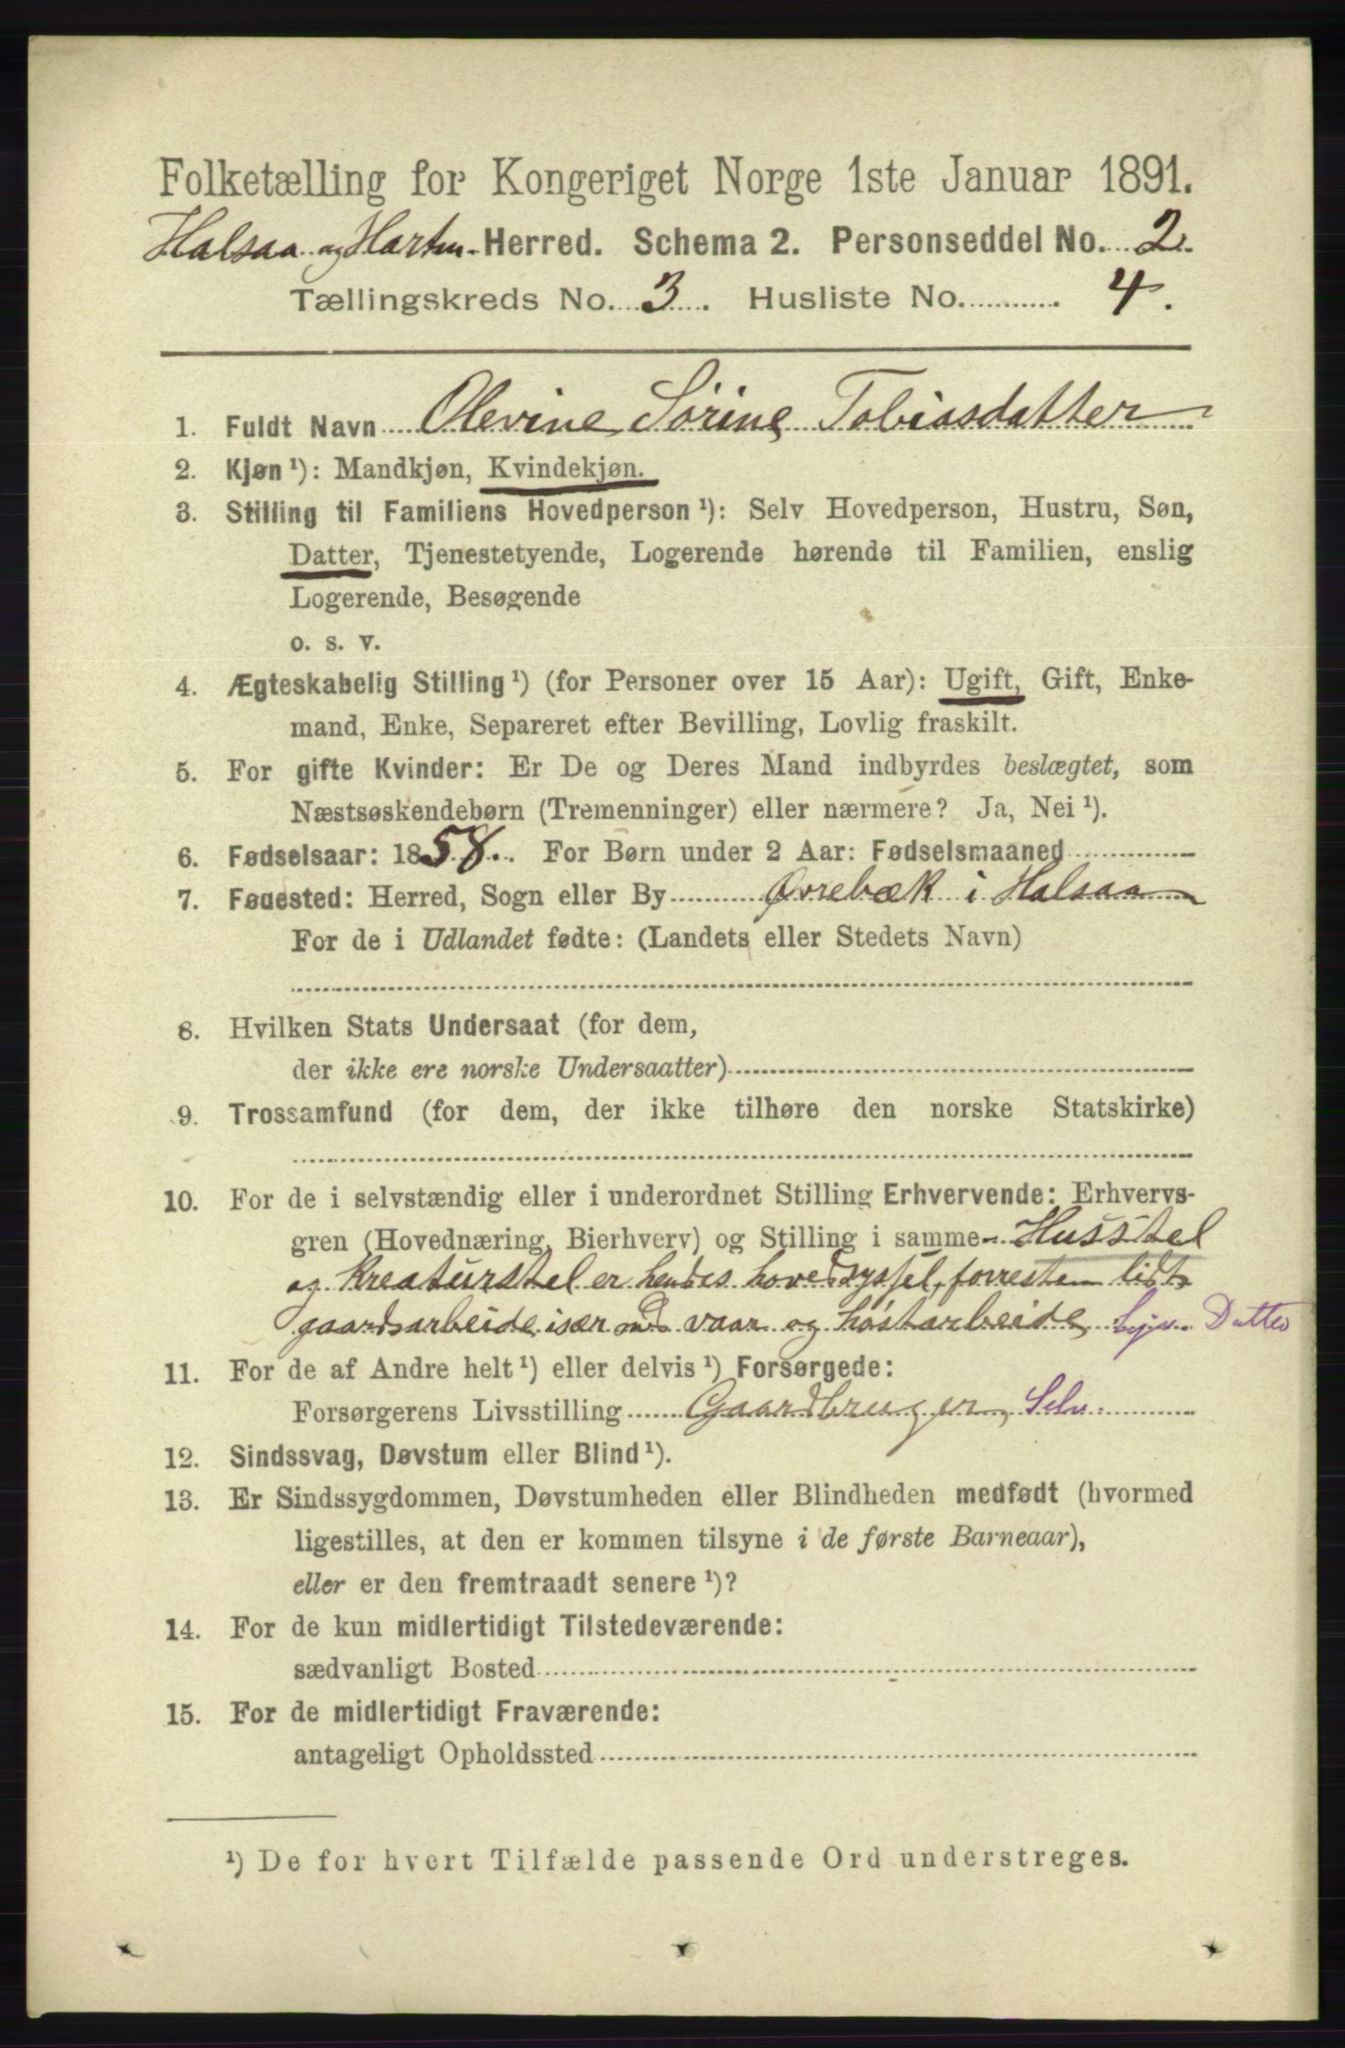 Folketælling for Kongeriget Norge 1ste Januar 1891.
Halsaa og Harkm. Herred. Schema 2. Personseddel No. 2.
Tællingskreds No. 3. Husliste No. 4.
1. Fuldt Navn Olevine Sørine Tobiasdatter
2. Kjøn¹): Mandkjøn, Kvindekjøn.
3. Stilling til Familiens Hovedperson¹): Selv Hovedperson, Hustru, Søn,
Datter, Tjenestetyende, Logerende hørende til Familien, enslig
Logerende, Besøgende
o. s. v.
4. Ægteskabelig Stilling¹) (for Personer over 15 Aar): Ugift, Gift, Enke-
mand, Enke, Separeret efter Bevilling, Lovlig fraskilt.
5. For gifte Kvinder: Er De og Deres Mand indbyrdes beslægtet, som
Næstsøskendebørn (Tremenninger) eller nærmere? Ja, Nei¹).
6. Fødselsaar: 1858. For Børn under 2 Aar: Fødselsmaaned
7. Fødested: Herred, Sogn eller By Øvrebæk i Halsaa
For de i Udlandet fødte: (Landets eller Stedets Navn)
8. Hvilken Stats Undersaat (for dem,
der ikke ere norske Undersaatter)
9. Trossamfund (for dem, der ikke tilhøre den norske Statskirke)
10. For de i selvstændig eller i underordnet Stilling Erhvervende: Erhvervs-
gren (Hovednæring, Bierhverv) og Stilling i samme Husstel
og Kreaturstel er hendes hovedsyssel, forresten lidt
gaardsarbeide især med vaar og høstarbeide Datter
11. For de af Andre helt¹) eller delvis¹) Forsørgede:
Forsørgerens Livsstilling Gaardbruger, Selv.
12. Sindssvag, Døvstum eller Blind¹).
13. Er Sindssygdommen, Døvstumheden eller Blindheden medfødt (hvormed
ligestilles, at den er kommen tilsyne i de første Barneaar),
eller er den fremtraadt senere¹)?
14. For de kun midlertidigt Tilstedeværende:
sædvanligt Bosted
15. For de midlertidigt Fraværende:
antageligt Opholdssted
¹) De for hvert Tilfælde passende Ord understreges.